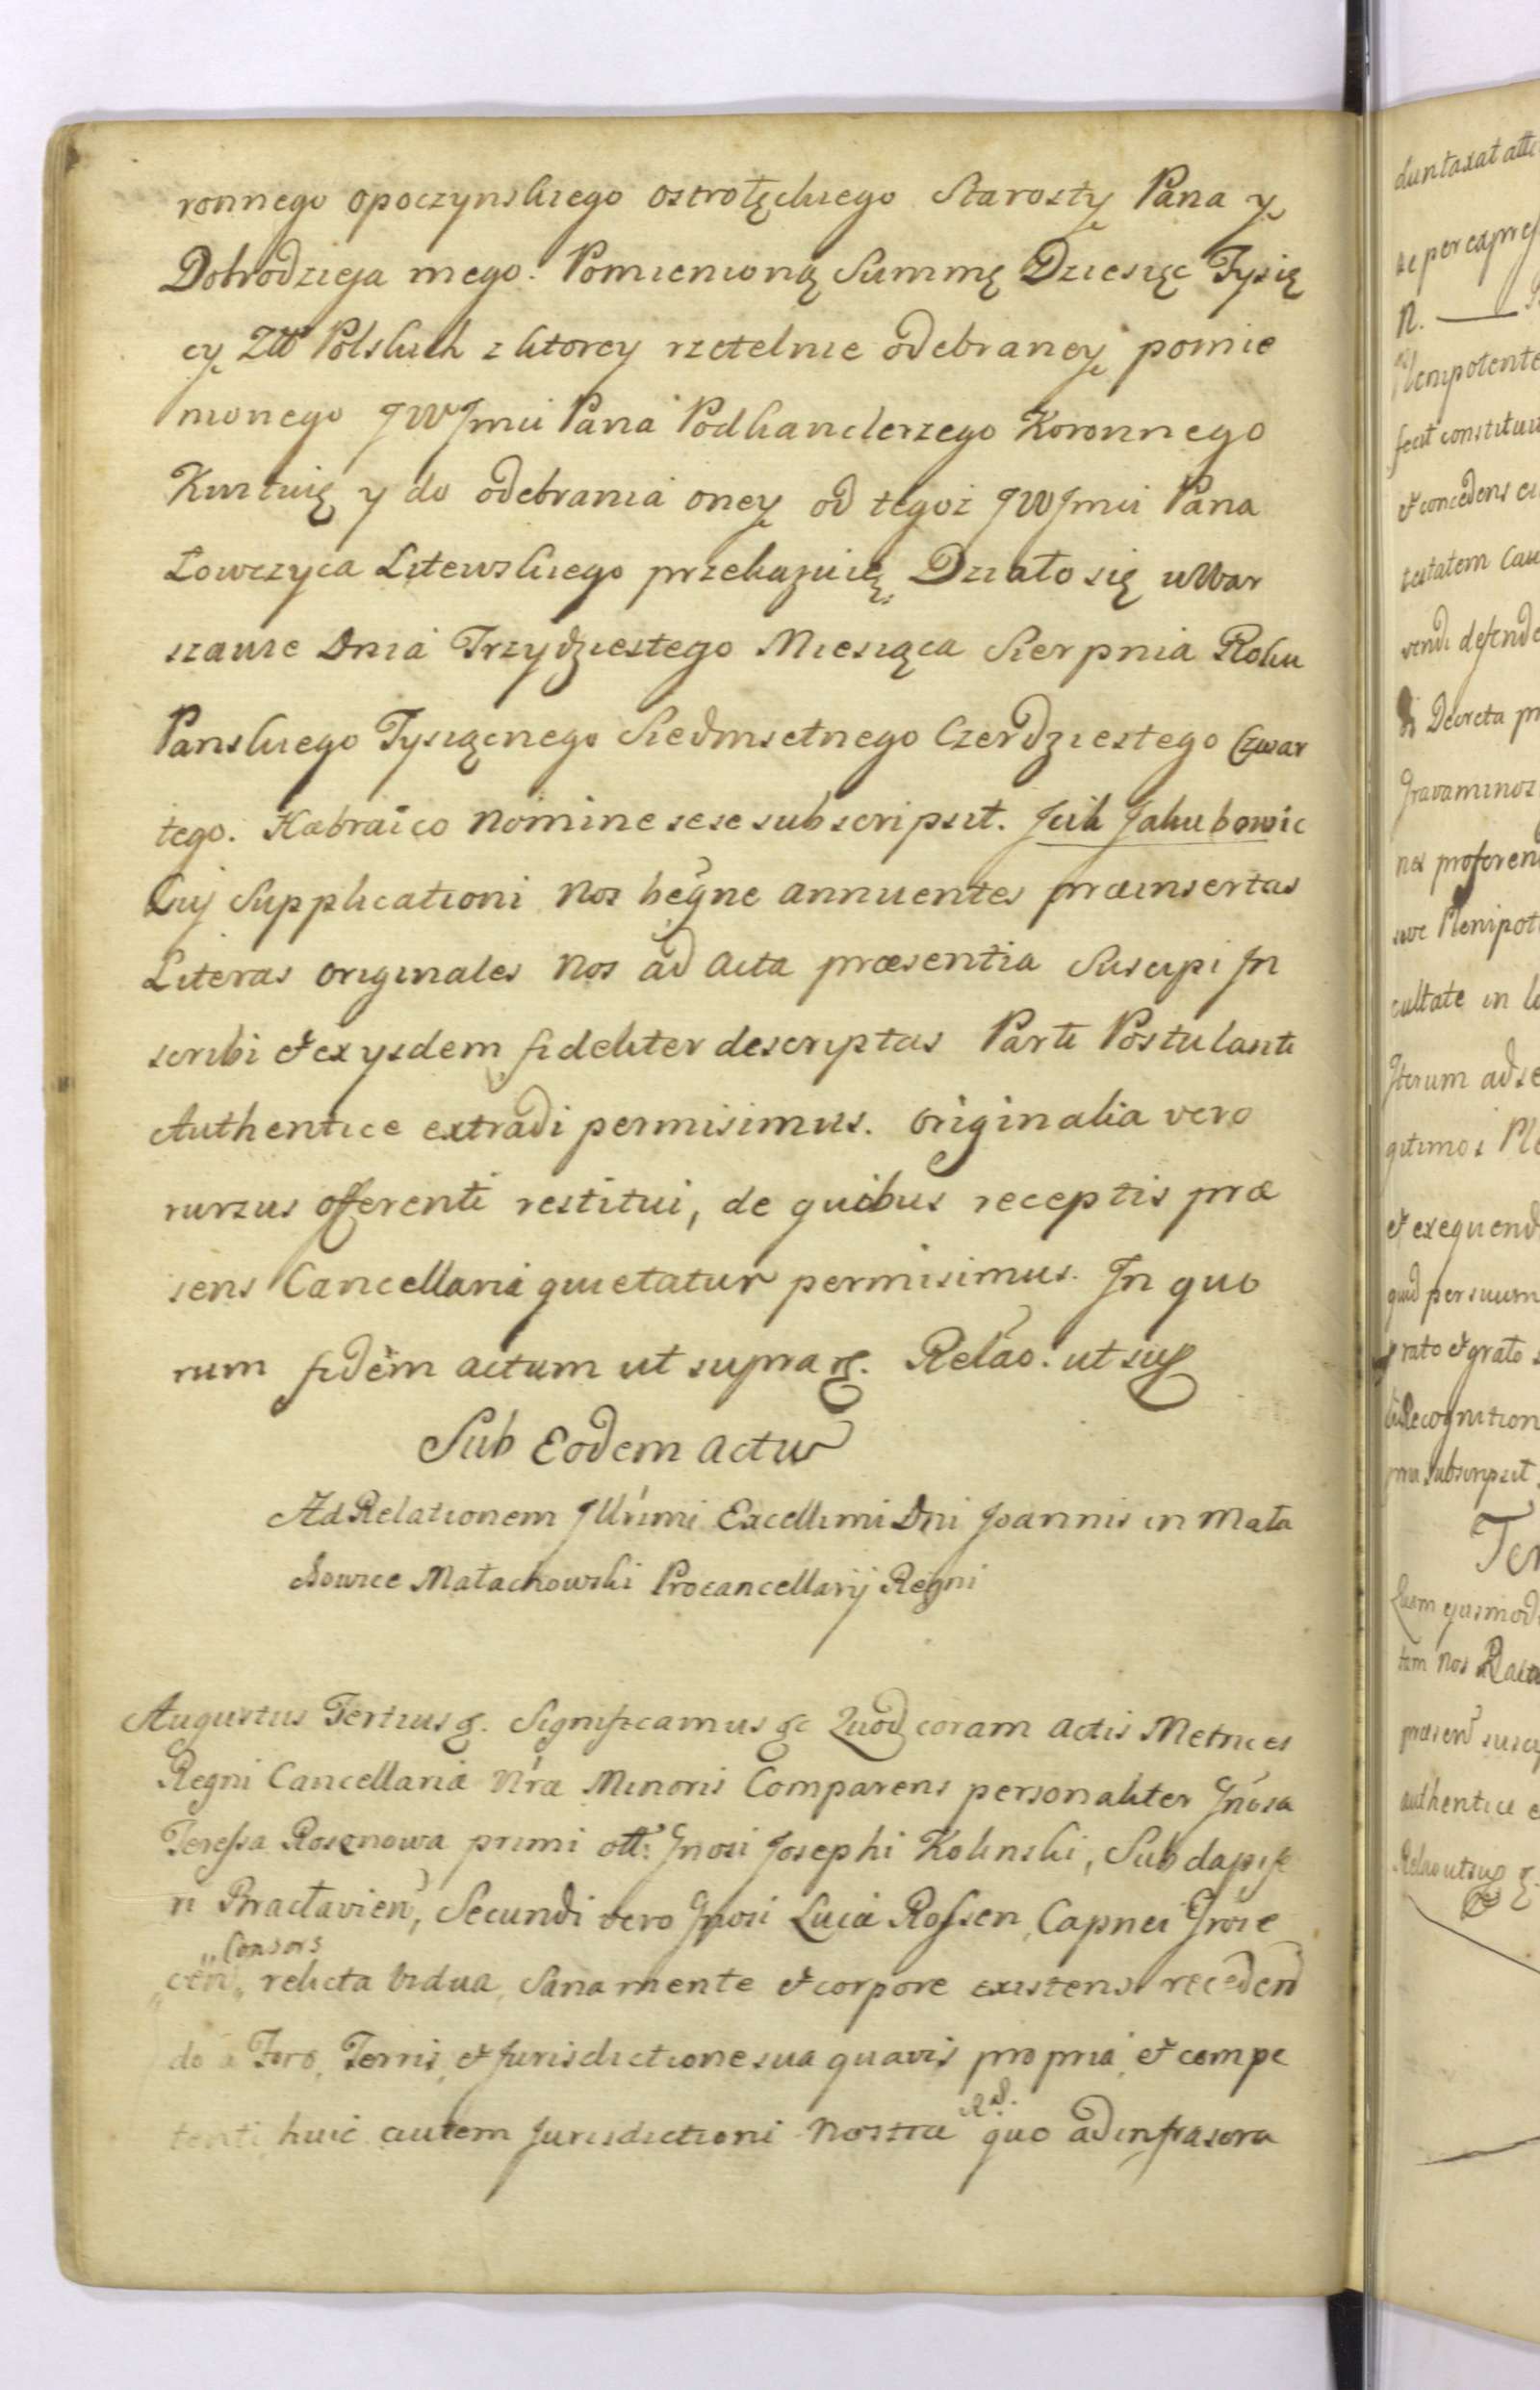 ronnego opoczynskiego ostrołęckiego Starosty Pana y
Dobrodzieja mego. Pomienioną Summę Dziesięc Tysię
cy Złł Polskich z ktorey rzetelnie odebraney pomie
nionego JWJmci Pana Podkanclerzego Koronnego
Kwituię y do odebrania oney od tegoż JWJmci Pana
Łowczyca Litewskiego przekazuię. Działo się w War
szawie Dnia Trzydziestego Miesiąca Sierpnia Roku
Panskiego Tysiącnego Siedmsetnego Czerdziestego Czwar
tego. Hæbraico Nomine sese subscripsit. Jcik Jakubowic
Cuj Supplicationi Nos begne annuentes præinsertas
Literas originales Nos ad Acta præsentia Suscipi In
scribi et ex ysdem fideliter descriptas Parti Postulanti
Authentice extradi permisimus. Originalia vero
rursus offerenti restitui, de quibus receptis præ
sens Cancellaria quietatur permisimus. In quo
rum fidem actum ut supra &. Relao. ut sup
Sub Eodem actu
Ad Relationem Jllrimi Excellimi Dni Joannis in Mała
chowice Małachowski Procancellarij Regni
Augustus Tertius &. Significamus &c Quod coram Actis Metrices
Regni Cancellariæ Nræ Minoris Comparens personaliter Gnosa
Teressa Rosenowa primi otti Gnosi Josephi Kolinski, Subdapife
ri Bractavien, Secundi vero Gnosi Lucæ Rossen, Capnei
Consors
relicta vidua, Sana mente et corpore existens receden
do a Foro, Terris, et Jurisdictione sua quavis propria, et compe
Rd.
tenti huic autem Jurisdictioni Nostræ quo ad infrascra
duntaxat atti
se per expres
N.
Plenipotente
fecit constitui
et concedens ei
testatem Cau
vendi defende
Decreta pr
Gravaminos
nes proferen
sive Plenipot
cultate in lo
Iterum ad se
gitimos Ple
et exequend
quid per suum
rato et grato
Recognition
subscripsit
Ter
Quem ejusmodi
tam Nos
præsen susci
authentice e
Relao ut sup &.